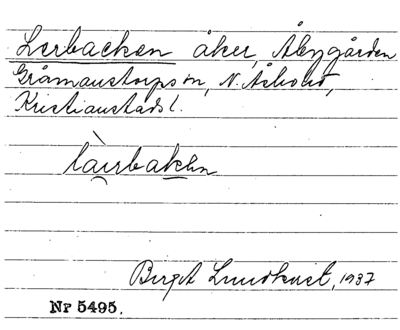 Lerbacken åker, Åbygården
Gråmanstorps sn, N. Åsbo hd,
Kristianstads l.
Birgit Lundkvist, 1937
Nr 5495.